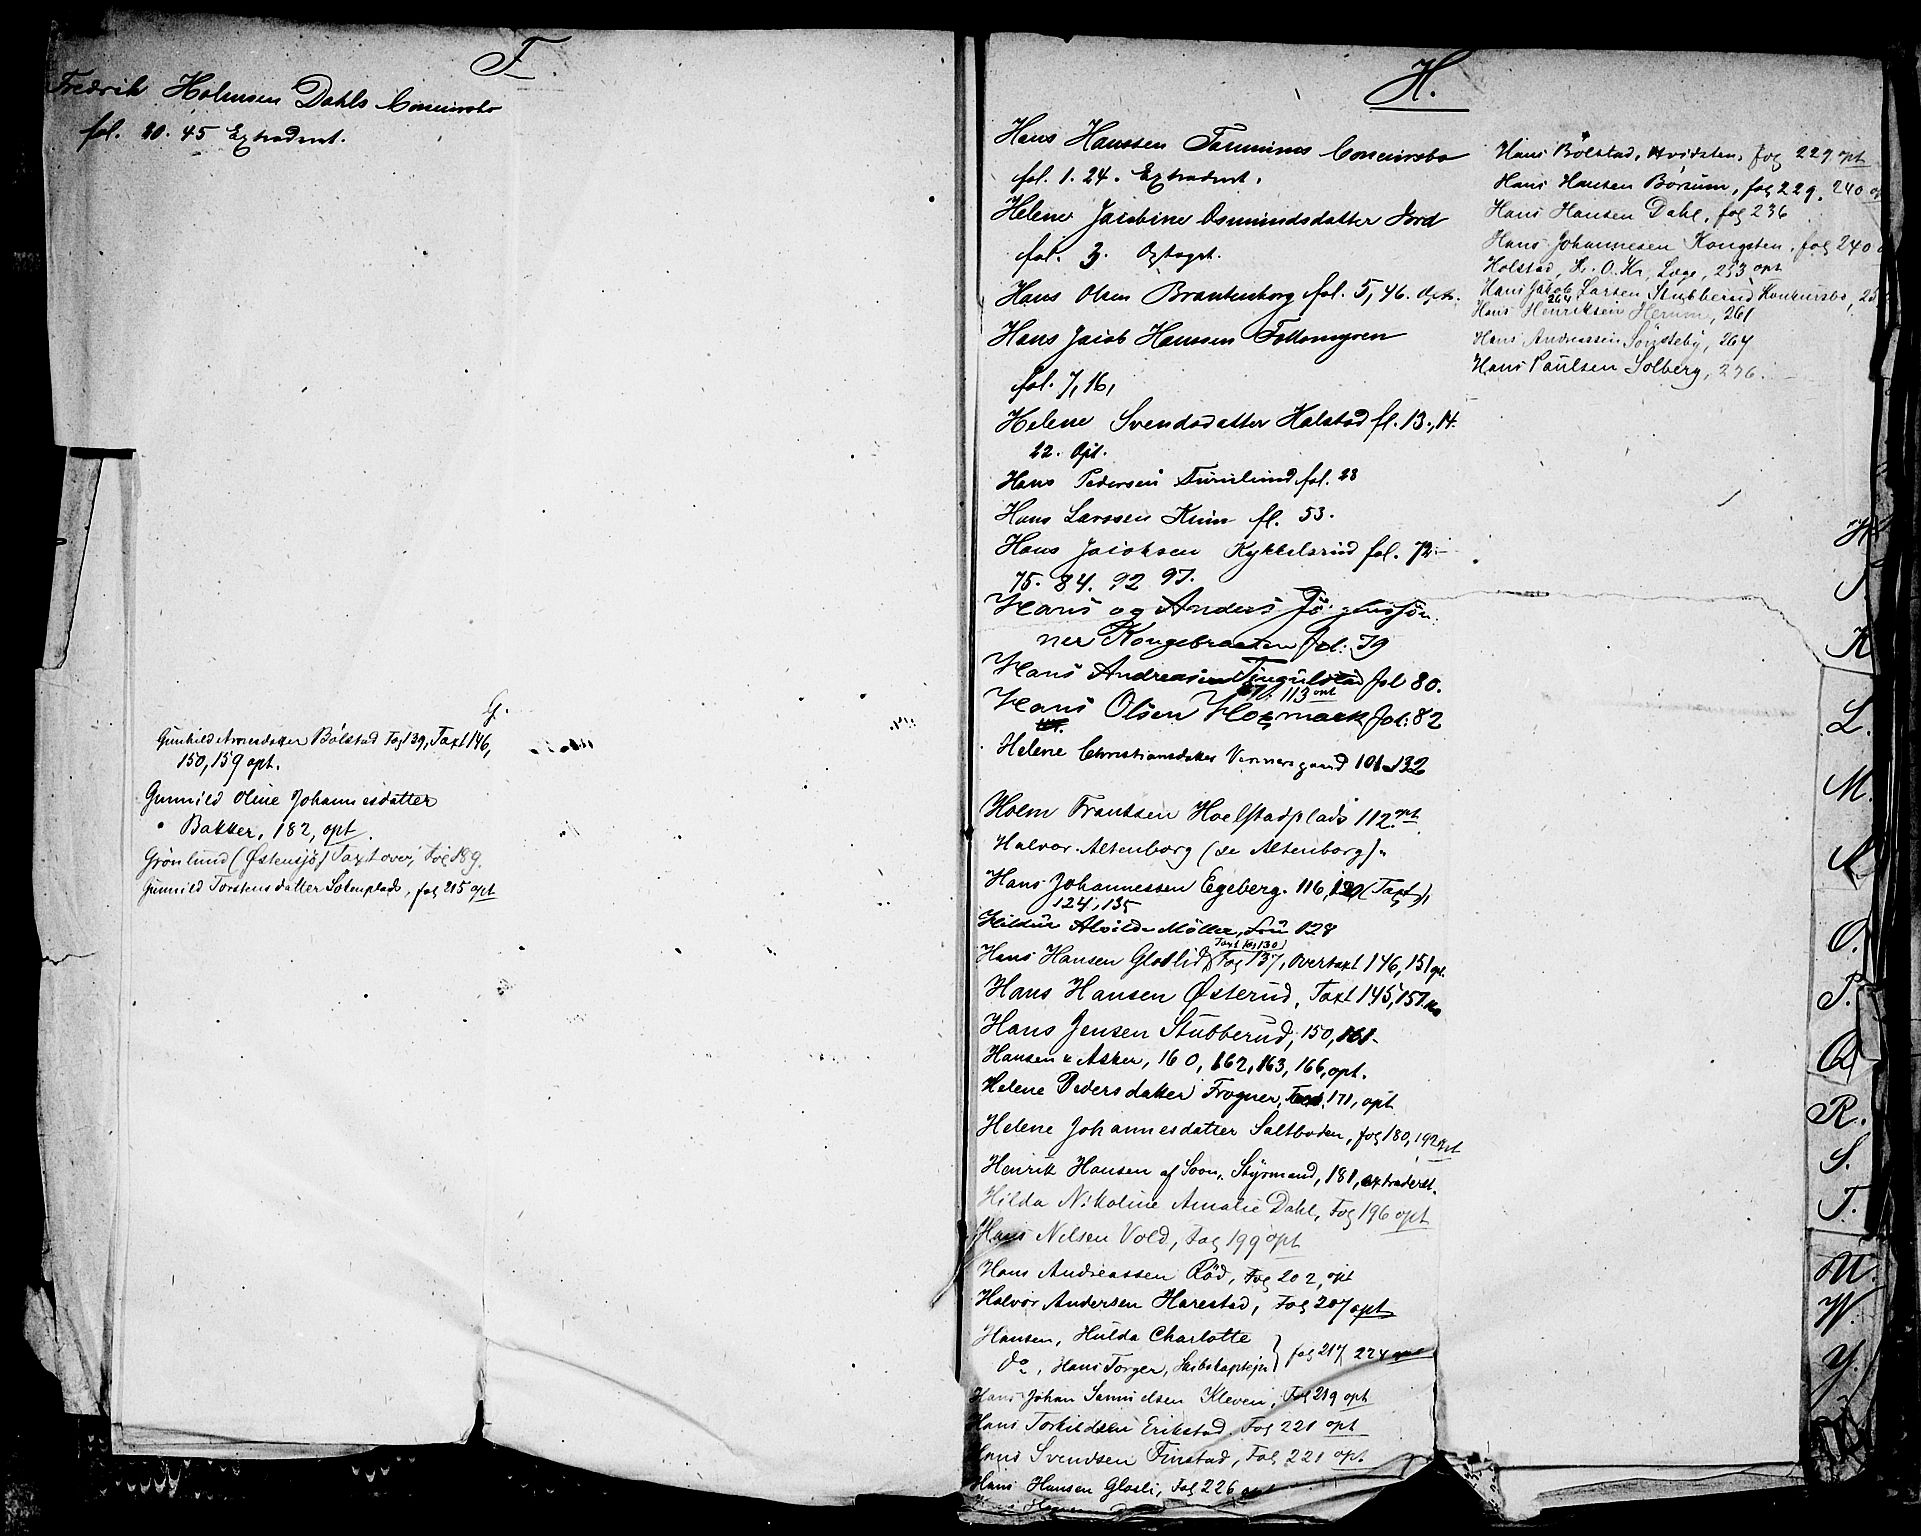 F
Fredrik Holmsen Dahls Concursbo
fol. 20. 45 Extraderet.
G.
Gunhild Arnesdatter Bölstad Fog 139, Taxt 146,
150, 159 opt.
Gunnild Oline Johannesdatter
Bakker, 182, opt
Grönlund (Østensjö) Taxt over, Fog 189.
Gunnild Torstensdatter Solenplads, fog 215 opt
H.
Hans Hanssen Concursbo
fol. 1. 24. Extraderet.
Helene Jacobine Osmundsdatter
fol. 3. Optaget.
Hans Olsen Brantenborg fol. 5, 46. Opt.
Hans Jacob Hanssen
fol. 7, 16,
Helene Svendsdatter Holstad fl. 13., 14.
22. Opt.
Hans Pedersen fol. 28
Hans Larssen fl. 53.
Hans Jacobsen Kykkelsrud fol. 72
75. 84. 92 97.
Hans og Anders Jörgenssön
ner Kongebraaten fol: 79
Hans Andreasen Tingulstad fol 80.
113 opt
Hans Olsen fol: 82
Helene Christiansdatter 101 132
Holm Frantsen Hoelstadplads 112 opt
Halvor Altenborg (se Altenborg).
Hans Johannessen Egeberg. 116, 120 (Taxt),
124, 135
Alvilde Möller, Fru 128
Taxt fog 130)
Hans Hansen Gloslid, Fog 137, Overtaxt 146, 151 opt.
Hans Hansen Østerud, Taxt 145, 157
Hans Jensen Stubberud, 150, 161.
Hansen & Asker, 160, 162, 163, 166, opt.
Helene Pedersdatter Frogner, 171, opt
Helene Johannesdatter Saltboden, fog 180, 192 opt
Henrik Hansen af Soon, Styrmand, 181, extraderet.
Hilda Nikoline Amalie Dahl, Fog 196 opt
Hans Nilsen Vold, Fog 199 opt
Hans Andreassen Röd, Fog 202, opt
Halvor Andersen Harestad, Fog 207 opt
Hansen, Hulda Charlotte
do, Hans Torger, Skibskaptejn } fog 217, 224 opt
Hans Johan Samuelsen Kleven, Fog 219 opt
Hans Torkildsen Erikstad, Fog 221 opt
Hans Svendsen Finstad, Fog 221 opt
Hans Hansen Glosli, Fog 226 opt
Hans Bölstad, Hvidsten, fog 227 opt
Hans Hansen Börsum, fog 229, 240
Hans Hansen Dahl, fog 236
Hans Johannesen Kongsten, fog 240
Holstad, Læge, 253 opt
Hans Jakob Larsen Stubberud Konkursbo,
264
Hans Henriksen Herum, 261
Hans Andreassen Sönsteby, 264
Hans Paulsen Solberg, 276.
H
J.
K
L.
M.
N
O.
P.
Q
R.
S.
T.
U.
W.
Y.